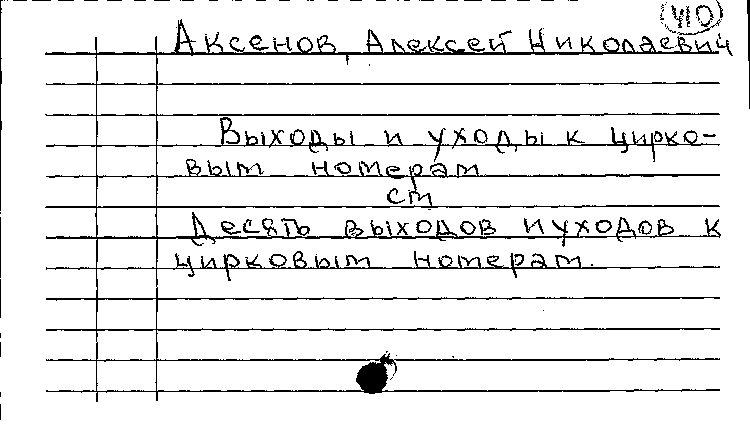 Аксенов, Алексей Николаевич
Выходы и уходы к цирко-
вым номерам
см
Десять выходов и уходов к
цирковым номерам.